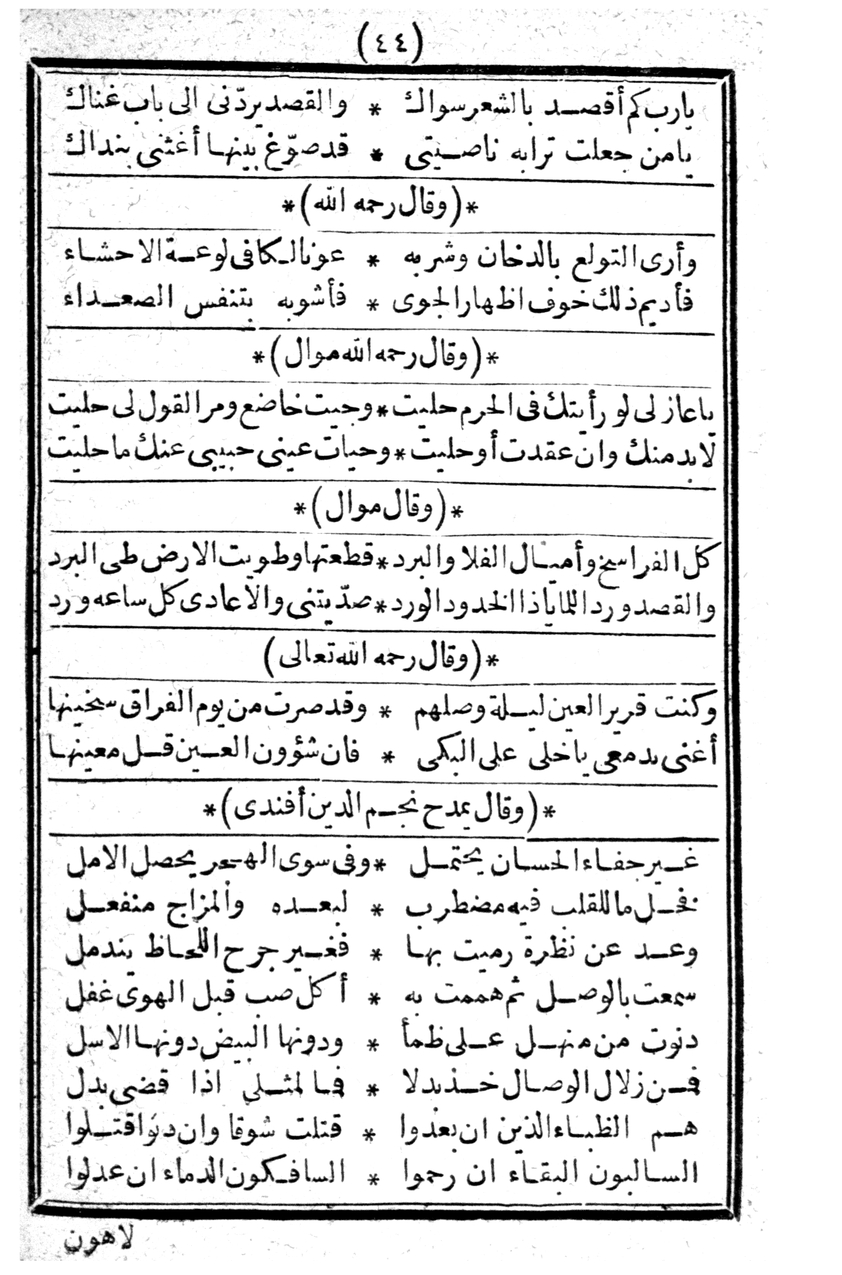 (٤٤)
يارب كم أقصد بالشعر سواك * والقصد يردّنى الى باب غناك
يامن جعلت ترابه ناصيتى * قد صوّغ بينها أغثنى بنداك
*(وقال رحمه الله)*
وأرى التولع بالدخان وشربه * عونا لكافى لوعة الاحشاء
فأديم ذلك خوف اظهار الجوى * فأشوبه بتنفس الصعداء
*(وقال رحمه الله موال)*
ياعازلى لو رأيتك فى الحرم حليت * وجيت خاضع ومر القول لى حليت
لا بد منك وان عقدت أو حليت * وحيات عينى حبيبى عنك ما حليت
*(وقال موال)*
كل الفراسخ وأميال الفلا والبرد * قطعتها وطويت الارض طى البرد
والقصد ورد اللما ياذا الخدود الورد * صدّيتنى والاعادى كل ساعه ورد
*(وقال رحمه الله تعالى)
وكنت قرير العين ليلة وصلهم * وقد صرت من يوم الفراق سخينها
أغثنى بدمعى ياخلى على البكى * فان شؤون العين قل معينها
*(وقال يمدح نجم الدين أفندى)*
غير جفاء الحسان يحتمل * وفى سوى الهجر يحصل الامل
فخل ما للقلب فيه مضطرب * لبعده والمزاج منفعل
وعد عن نظرة رميت بها * فغير جرح اللحاظ يندمل
سمعت بالوصل ثم هممت به * أكل صب قبل الهوى غفل
دنوت من منهل على ظمأ * ودونها البيض دونها الاسل
فمن زلال الوصال خذ بدلا * فما لمثلى اذا قضى بدل
هم الظباء الذين ان بعدوا * قتلت شوقا وان دنوا قتلوا
السالبون البقاء ان رحموا * السافكون الدماء ان عدلوا
لاهون